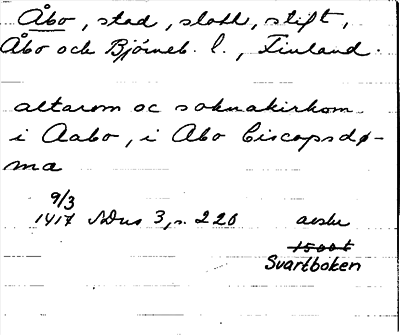 Åbo, stad, slott, stift,
Åbo och Björneb. l., Finland.
altarom oc soknakirkom
i Aabo, i Abo biscopsdø-
ma
9/3
1417 Dus 3, s. 220 avskr
1500t
Svartboken